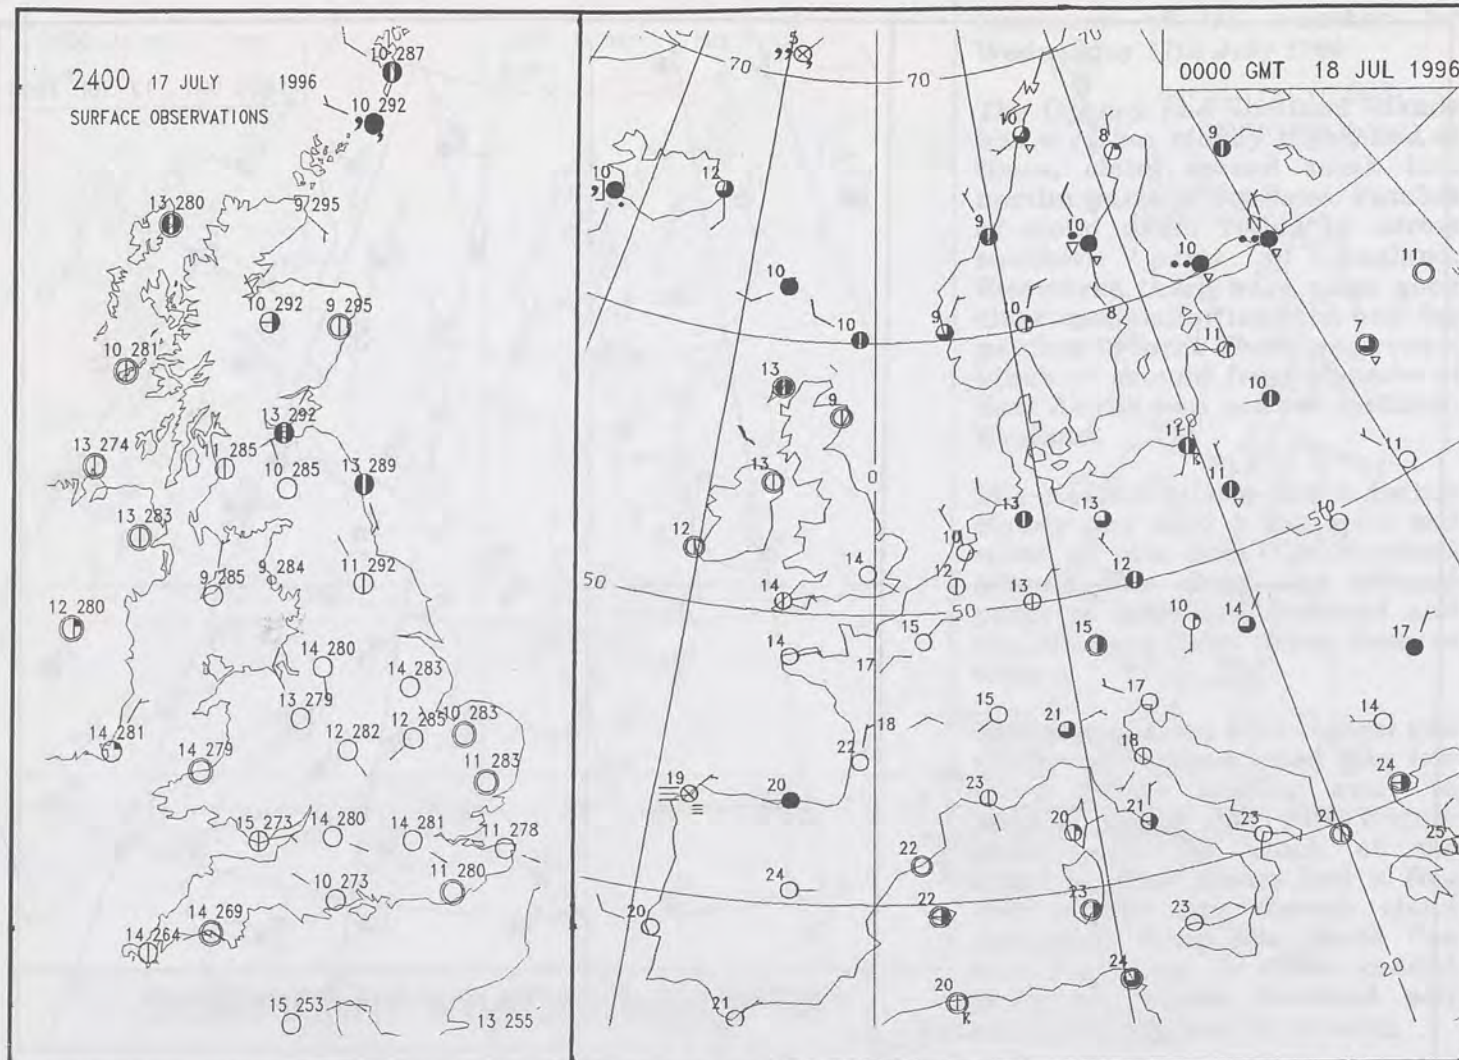 2400 17 JULY 1996
SURFACE OBSERVATIONS
10 287
10 292
13 280
9 295
10 292
9 295
10 281
13 292
13 274
11 285
10 285
13 289
13 283
9 285
9 284
11 292
12 280
14 280
14 283
13 279
14 281
12 282
12 285
10 283
14 279
11 283
15 273
14 280
14 281
11 278
10 273
11 280
14 269
14 264
15 253
13 255
0000 GMT 18 JUL 1996
70
70
70
10
8
9
10
12
9
10
10
11
11
10
10
9
10
8
11
7
13
9
10
13
0
17
11
11
12
13
13
10
50
10
14
12
13
12
50
14
50
15
10
14
17
14
17
15
21
17
14
18
22
18
24
19
20
23
20
21
23
21
25
22
24
22
23
23
20
20
24
20
21